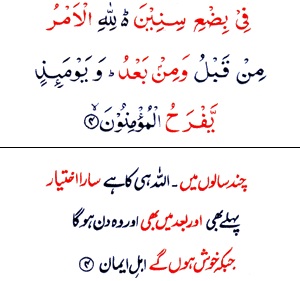 فِیْ بِضْعِ سِنِیْنَ ؕ۬ لِلّٰهِ الْاَمْرُ
مِنْ قَبْلُ وَمِنْ بَعْدُ ؕ وَ یَوْمَىِٕذٍ
یَّفْرَحُ الْمُؤْمِنُوْنَ ۙ﴿۴﴾
چند سالوں میں ۔ اللہ ہی کا ہے سارا اختیار
پہلے بھی اور بعد میں بھی اور وہ دن ہوگا
جبکہ خوش ہوں گے اہلِ ایمان ﴿۴﴾